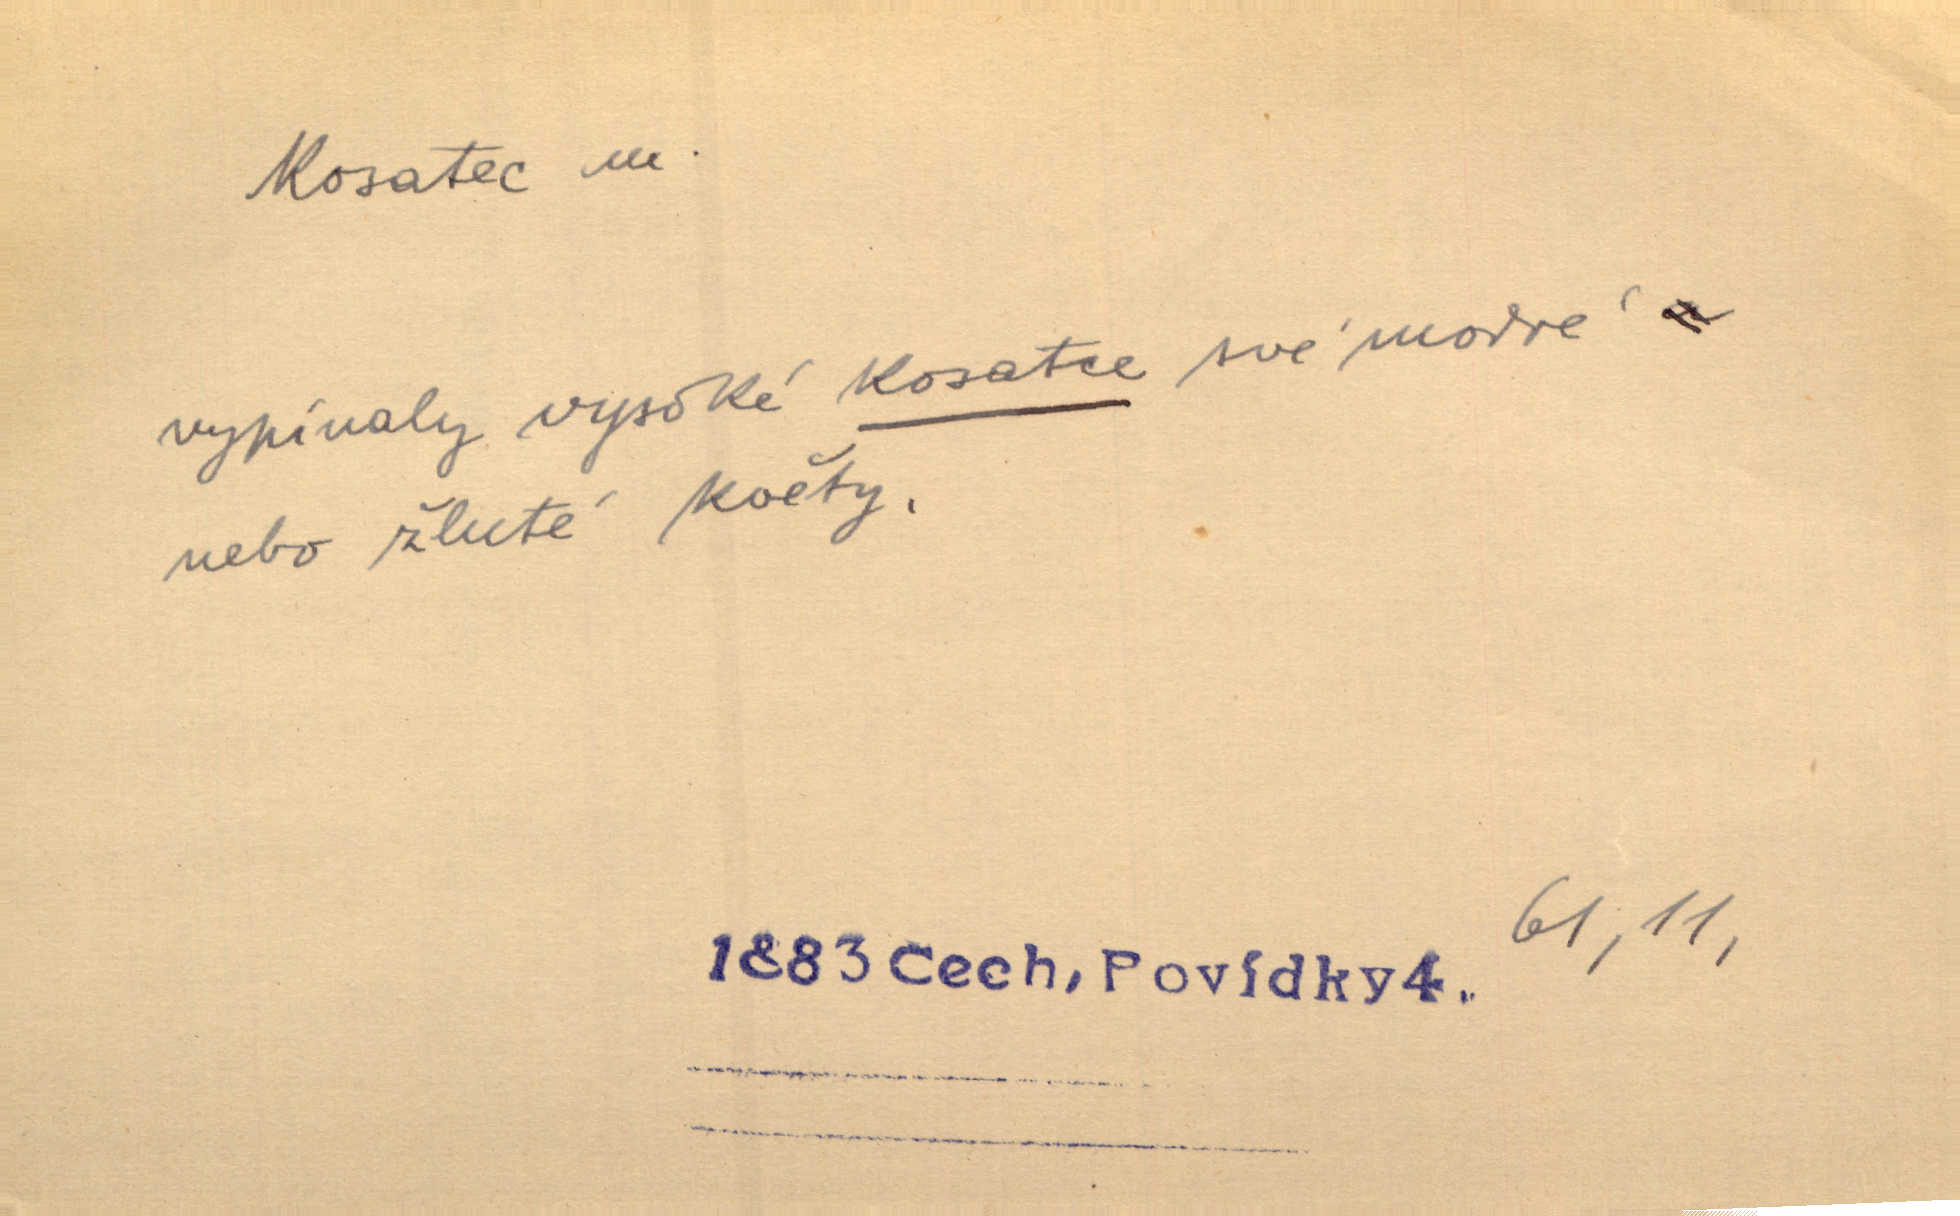 Kosatec m.
vypínaly vysoké kosatce své modré
nebo žluté květy.
61, 11,
1883 Cech, Povídky 4.